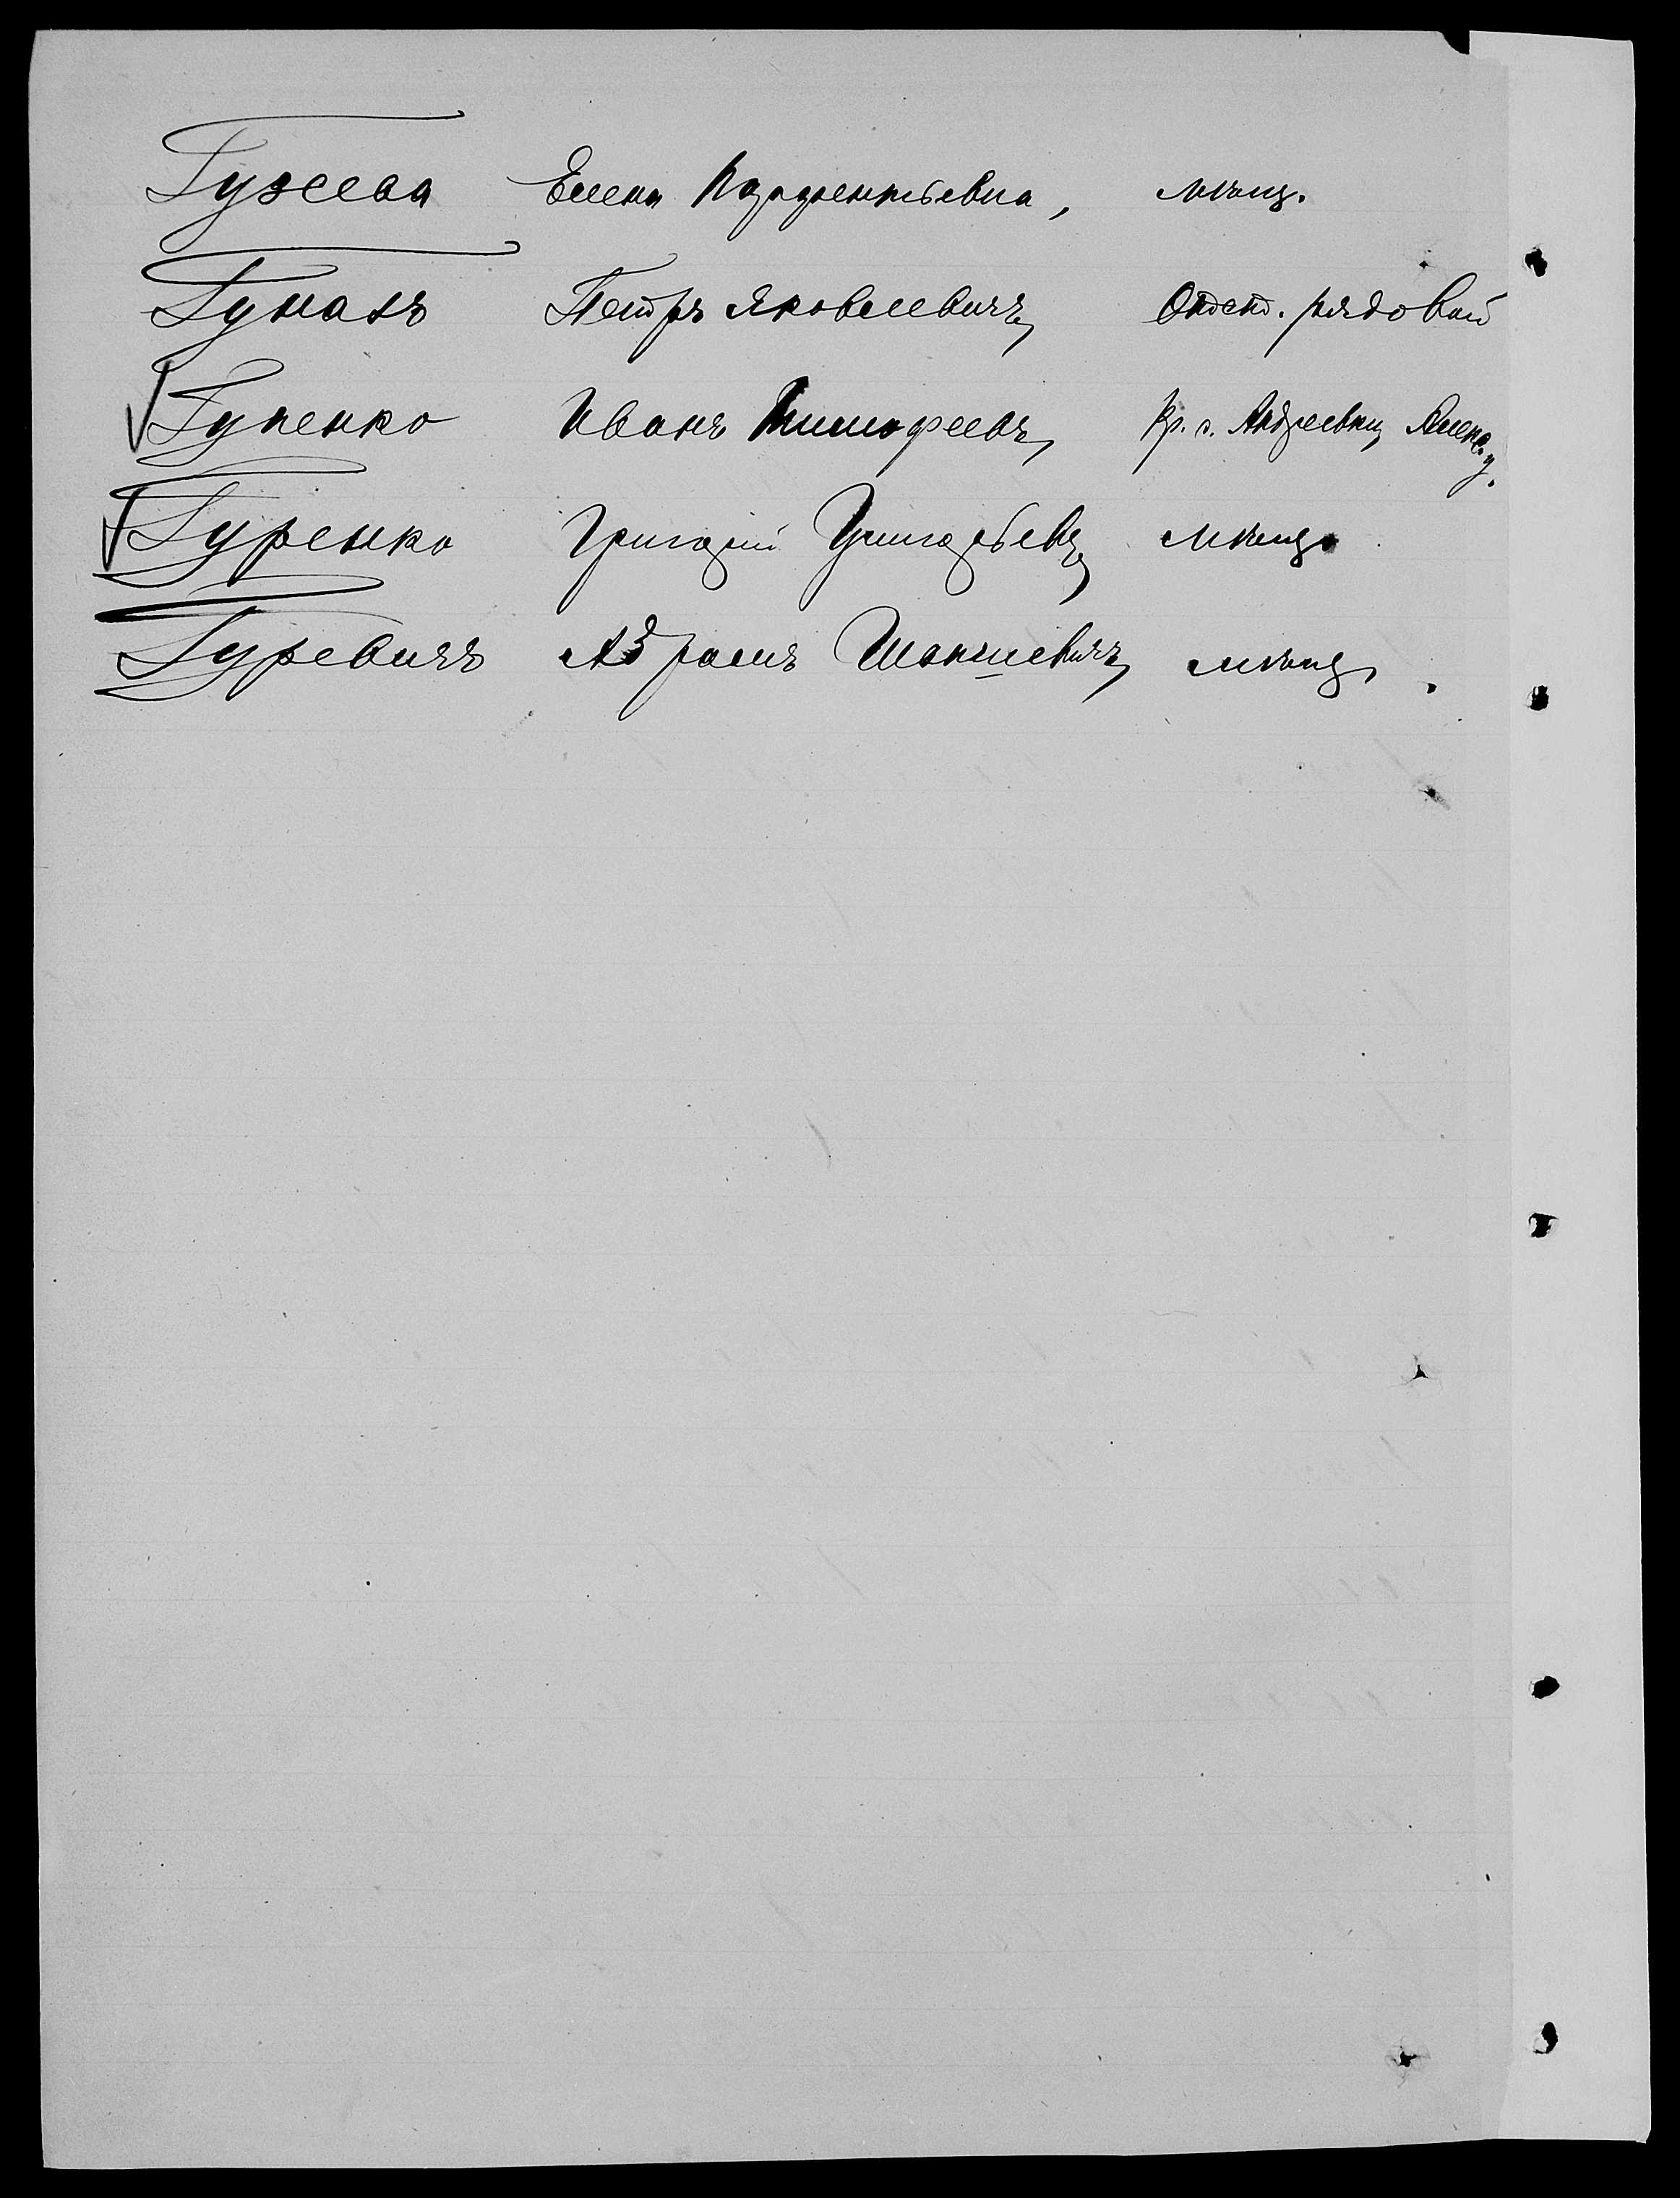 Гужеева Елена Терентьевна, мѣщ.
Гунахъ Петръ Яковлевичъ, Отст. рядовой
Гупенко Иванъ Тимофеевъ, Кр. с. Андреевки, Алекс. у.
Гуренко Григорій Григорьевъ, мѣщ.
Гуревичъ Абрамъ мѣщ.